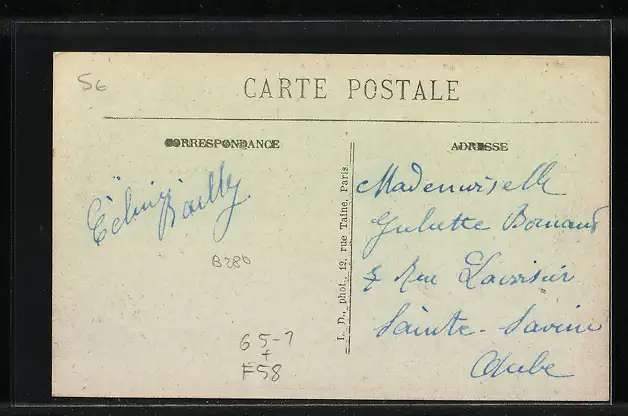 5€
CARTE POSTALE
CORRESPONDANCE
ADRESSE
Bailly
B280
65-1
+
F58
L. D., phot., 12, rue Taine, Paris
Mademoiselle
Juliette
Rue Lavoisier
Sainte-Savine
Aube